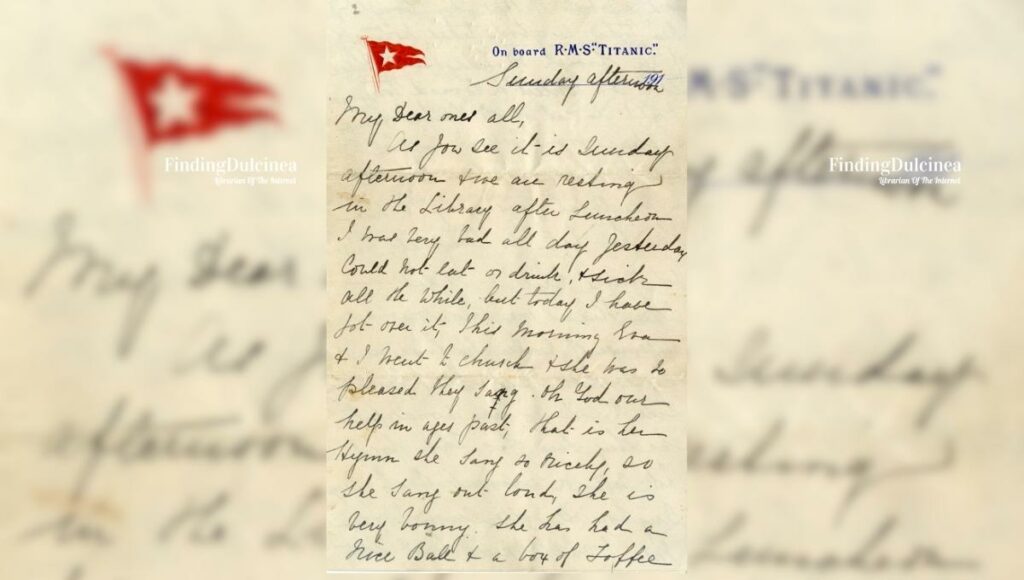 On board R·M·S "TITANIC."
Sunday afternoon 191
My Dear ones all,
As you see it is Sunday
afternoon & we are resting
in the Library after Luncheon
I was very bad all day Yesterday
Could not eat or drink, & sick
all the While, but today I have
got over it, This Morning Eva
& I went to church & she was so
pleased they sang. Oh God our
help in ages past, that is her
Hymn she sang so nicely, so
she sang out loud, She is
very bonny. She has had a
Nice Ball & a box of Toffee
FindingDulcinea
Librarian Of The Internet
FindingDulcinea
Librarian Of The Internet